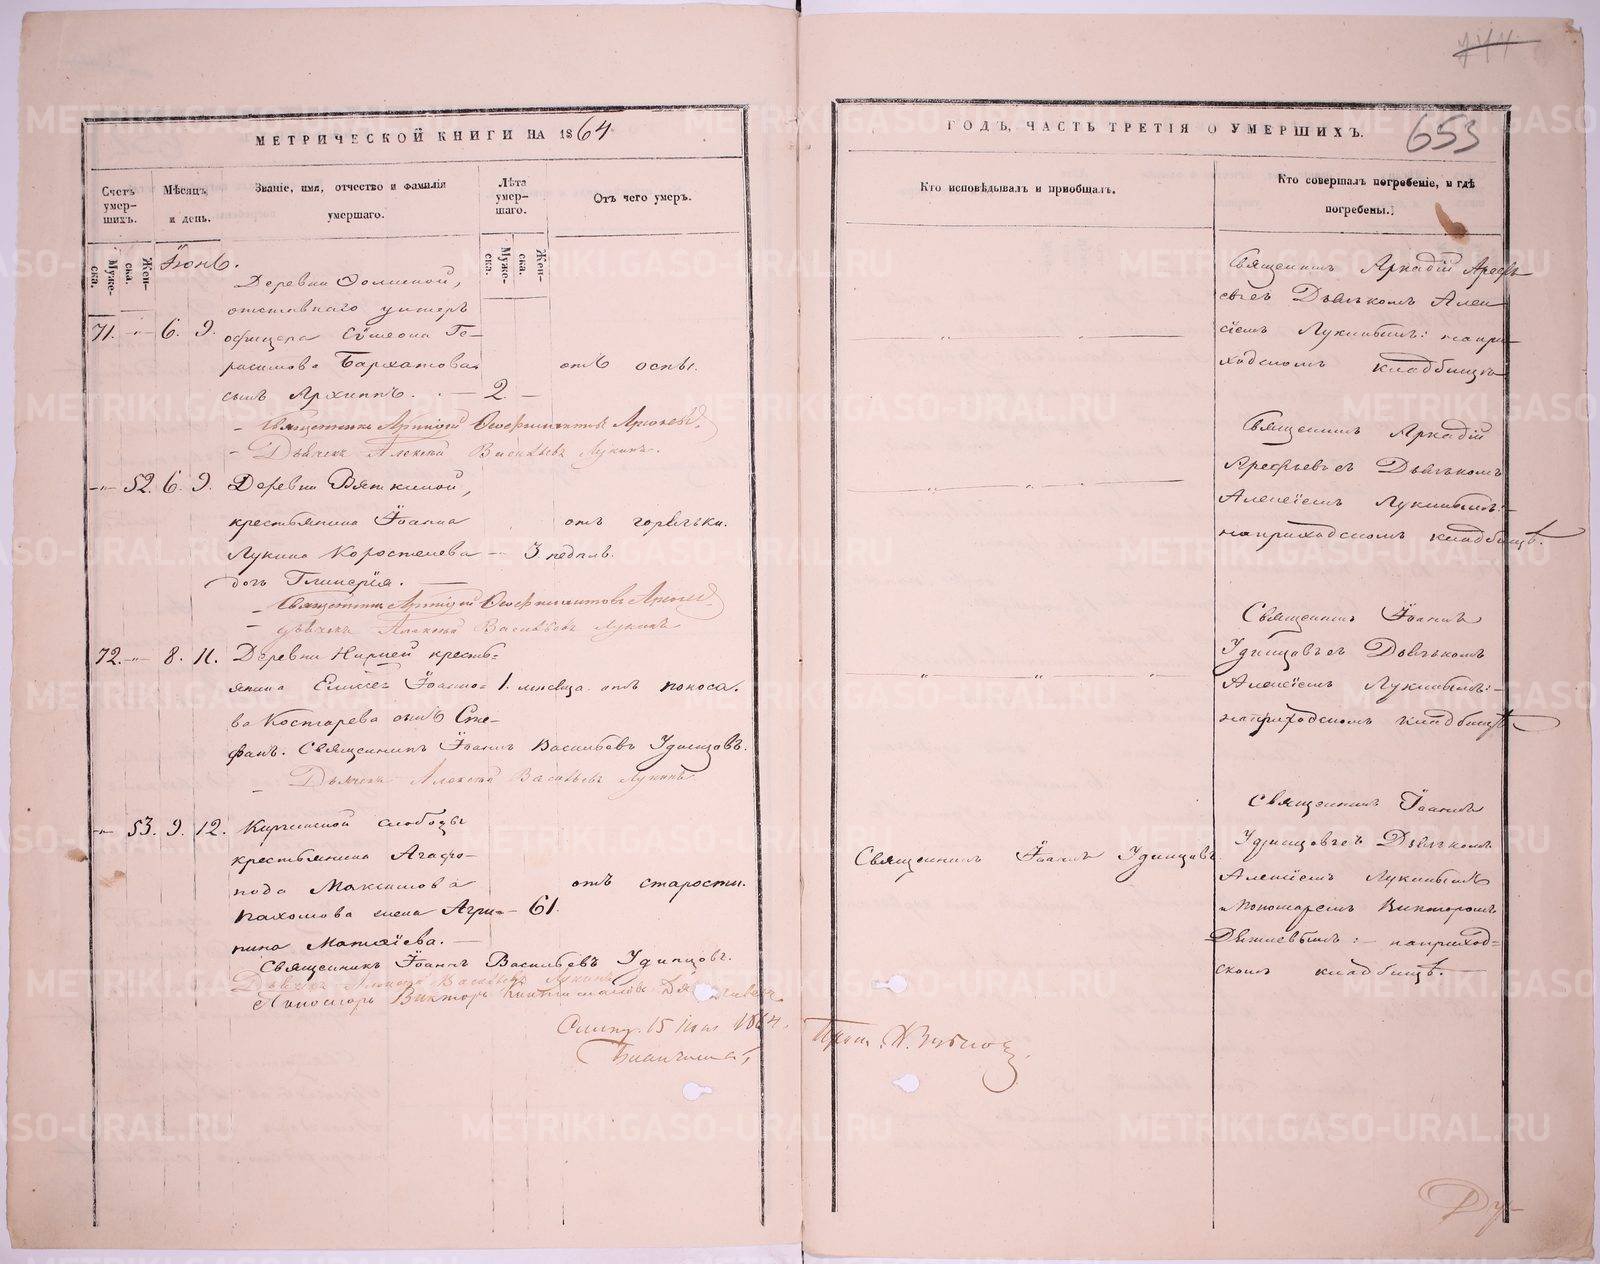 МЕТРИЧЕСКОЙ КНИГИ НА 1864
Счетъ умер-шихъ.
Мѣсяцъ и день.
Званіе, имя, отчество и фамилія умершаго.
Лѣта умер-шаго.
Отъ чего умеръ.
Муже-ска.
Жен-ска.
Муже-ска.
Жен-ска.
Іюнь.
Деревни
отставнаго унтеръ
71. -"- 6. 9. офицера Сѵмеона Ге-
расимова Бархатова отъ оспы.
сынъ Архиппъ. — 2. —
Священникъ Аркадій
Дьячекъ Алексѣй Васильевъ Лукинъ.
-"- 52. 6. 9. Деревни Вяткиной,
крестьянина Іоанна отъ горячки.
Лукина Коростелева — 3 недѣль.
дочь Гликерія. —
Священникъ Аркадій
Дьячекъ Алексѣй Васильевъ Лукинъ
72. -"- 8. 11. Деревни крестья-
янина Елисея Іоанно- 1. мѣсяца. отъ поноса.
ва Костарева сынъ Сте-
фанъ. Священникъ Іоаннъ Васильевъ Удинцовъ.
Дьячекъ Алексѣй Васильевъ Лукинъ
-"- 53. 9. 12. Киргишской слободы
крестьянина Агафо-
нода Максимова отъ старости.
Пахомова жена Агри- — 61.
пина Матѳіева. —
Священникъ Іоаннъ Васильевъ Удинцовъ.
Дьячекъ Алексѣй Васильевъ Лукинъ
Пономарь Викторъ
15 Іюля 1864.
ГОДЪ, ЧАСТЬ ТРЕТІЯ О УМЕРШИХЪ.
653
Кто исповѣдывалъ и пріобщалъ.
Кто совершалъ погребеніе, и гдѣ погребены.
Священникъ Аркадій Арефь-
евъ съ Дьячкомъ Алек-
сіемъ Лукинымъ: на при-
ходскомъ кладбищѣ
Священникъ Аркадій
Арефьевъ съ Дьячкомъ
Алексіемъ Лукинымъ:-
на приходскомъ кладбищѣ.
Священникъ Іоаннъ
Удинцовъ съ Дьячкомъ
Алексіемъ Лукинымъ:-
на приходскомъ кладбищѣ
Священникъ Іоаннъ Удинцовъ.
Священникъ Іоаннъ
Удинцовъ съ Дьячкомъ
Алексіемъ Лукинымъ
и Пономаремъ Викторомъ
: — на приход-
скомъ кладбищѣ.
METRIKI.GASO-URAL.RU